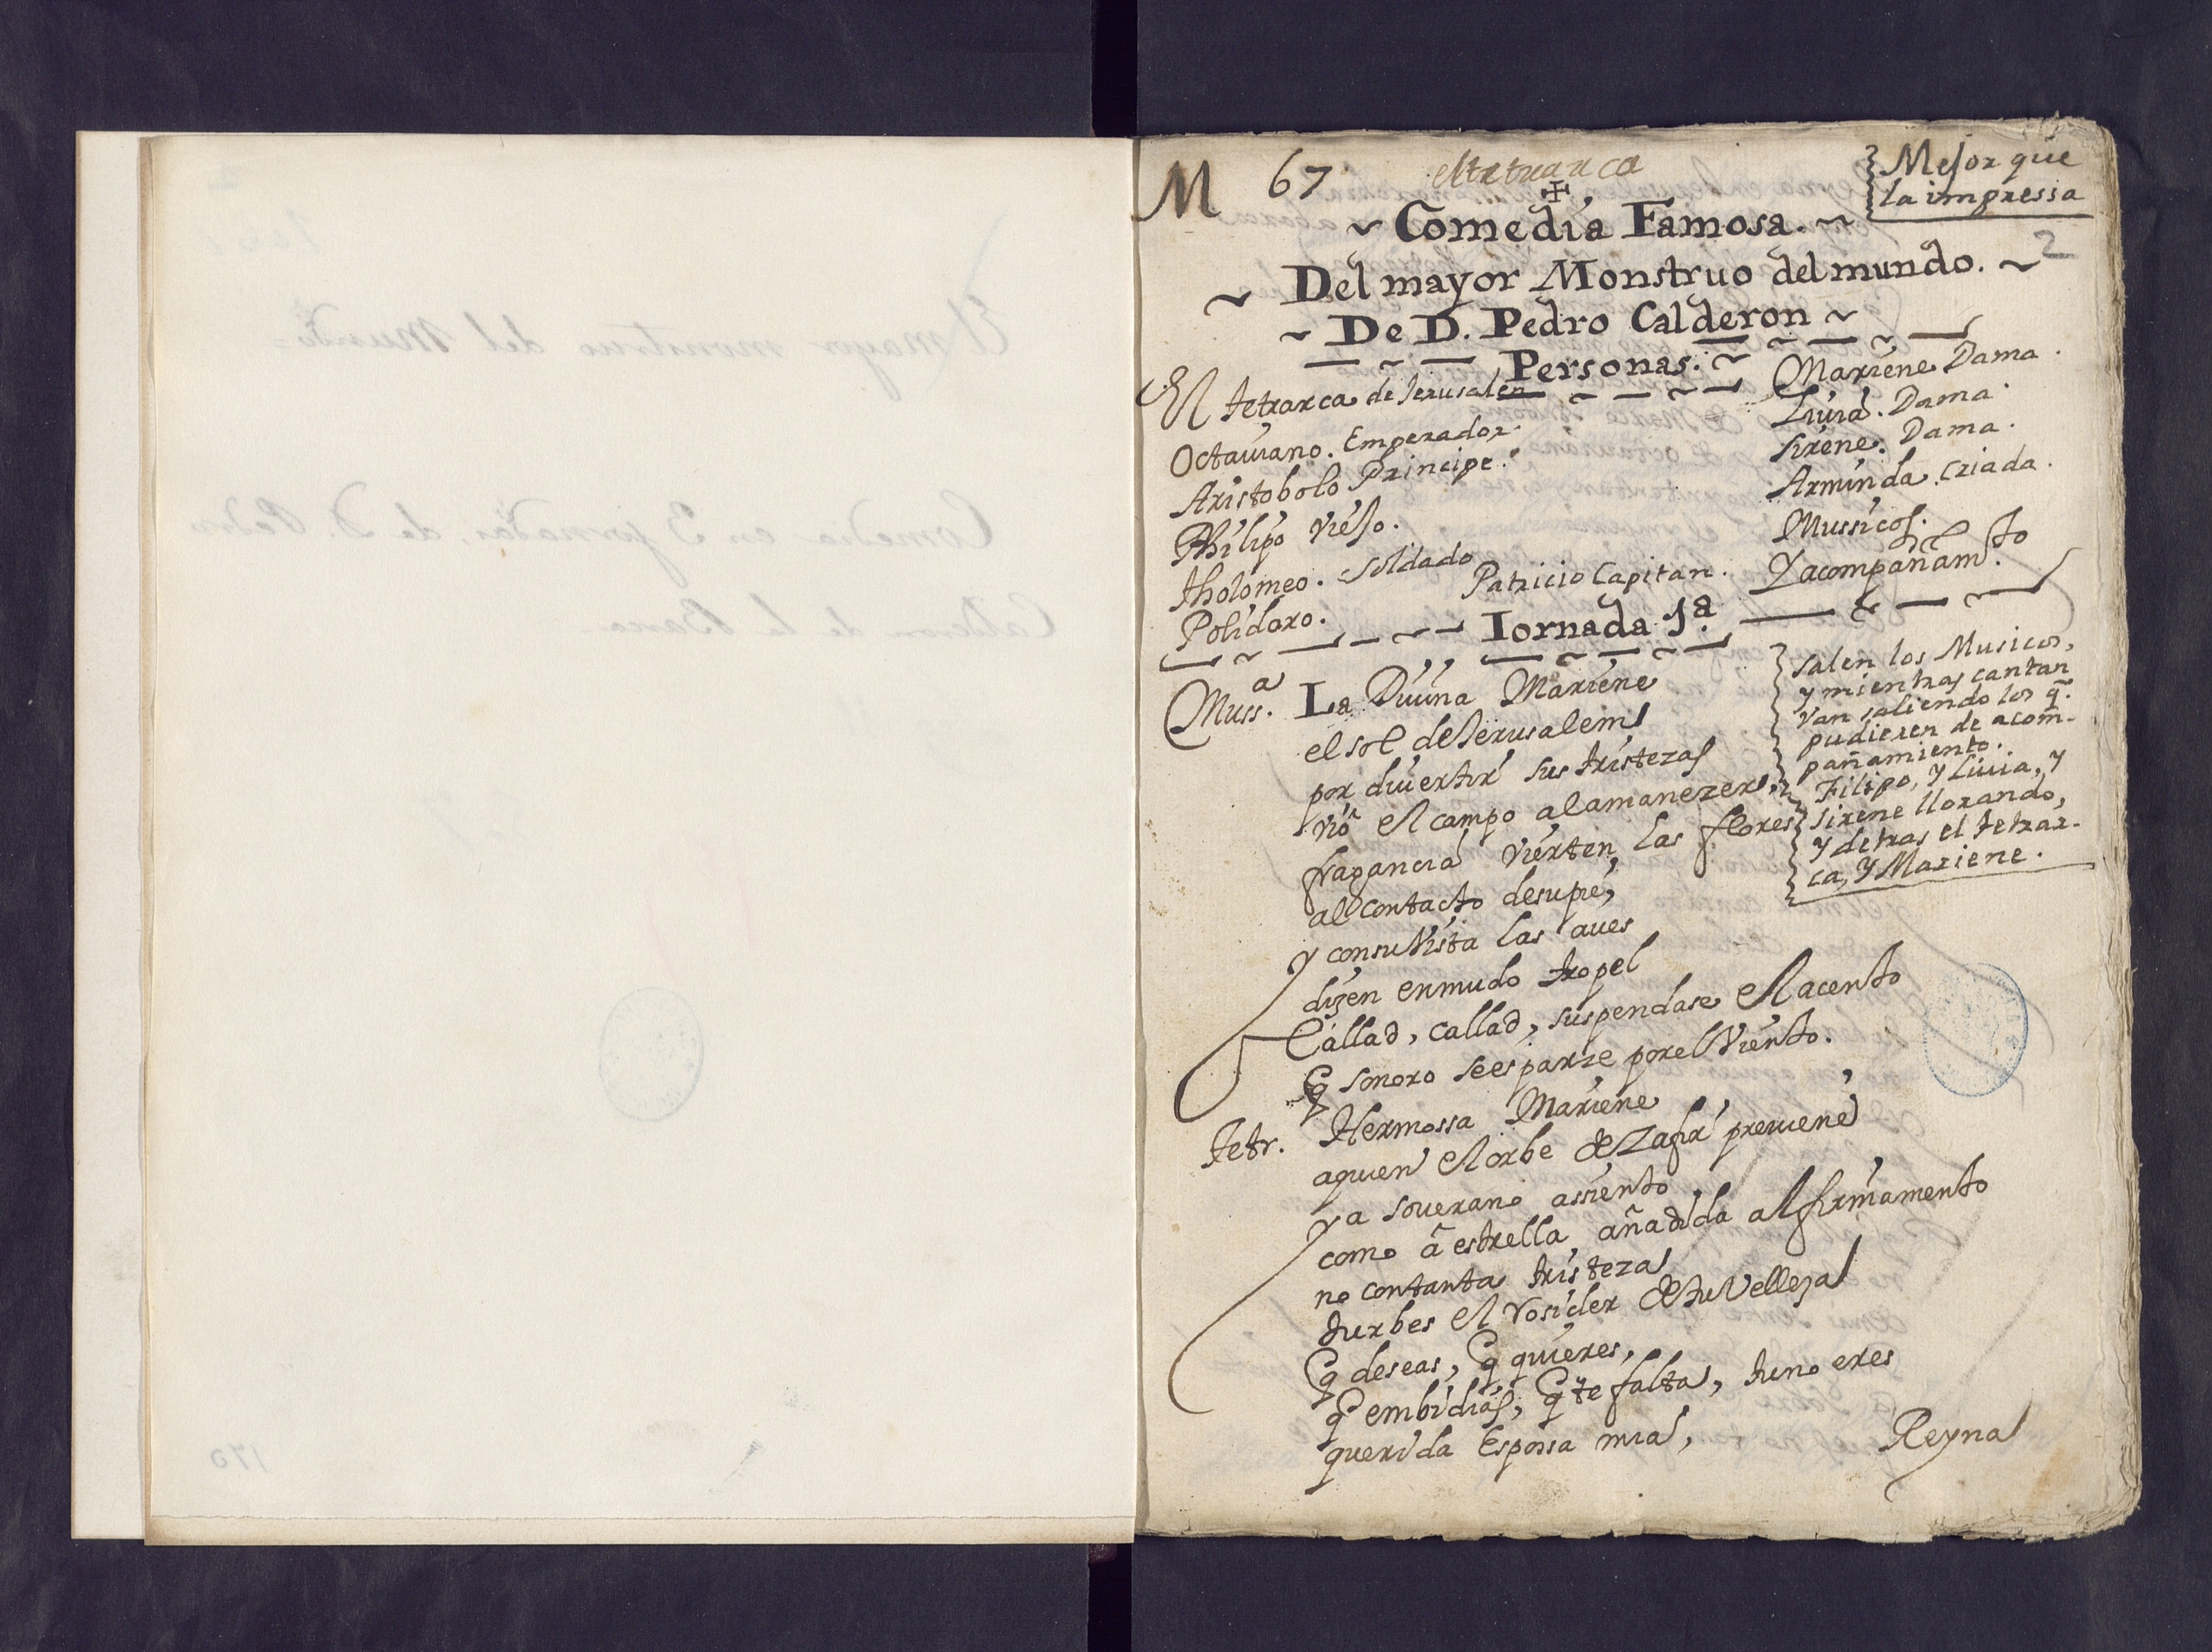 M 67 el tetrarca
Mejor que
la impressa
2
~ Comedia Famosa. ~
~ Del mayor Monstruo del mundo. ~
~ De D. Pedro Calderon ~
Personas. ~
El tetrarca de Jerusalen
Octauiano. Emperador.
Aristobolo Principe.
Philipo viejo.
tholomeo. soldado
Polidoro.
Patricio Capitan.
Mariene Dama.
Liuia. Dama.
sirene. Dama.
Arminda criada.
Mussicos.
Y acompañamto.
Iornada 1a
Mussa. La Diuina Mariene
el sol de Jerusalem
por diuertir sus tristezas
vió el campo al amanezer,
fragancia vierten las flores
al contacto de su pie,
y con su vista las aues
dizen en mudo tropel
Callad, callad, suspendase el acento
q sonoro se esparze por el viento.
salen los Musicos,
y mientras cantan
van saliendo los q.
pudieren de acom-
pañamiento.
Filipo, y Liuia, y
sirene llorando,
y detras el tetrar-
ca, y Mariene.
tetr. Hermossa Mariene
a quien el orbe de zafir preuiene
ya souerano assiento
como â estrella añadida al firmamento
no con tanta tristeza
turbes el rosicler de tu velleza
q deseas, q quieres,
q embidias, q te falta, tu no eres
querida Espossa mia,
Reyna
El mayor monstruo del Mundo=
Comedia en 3 jornadas, de D. Pedro
Calderon de la Barca
170